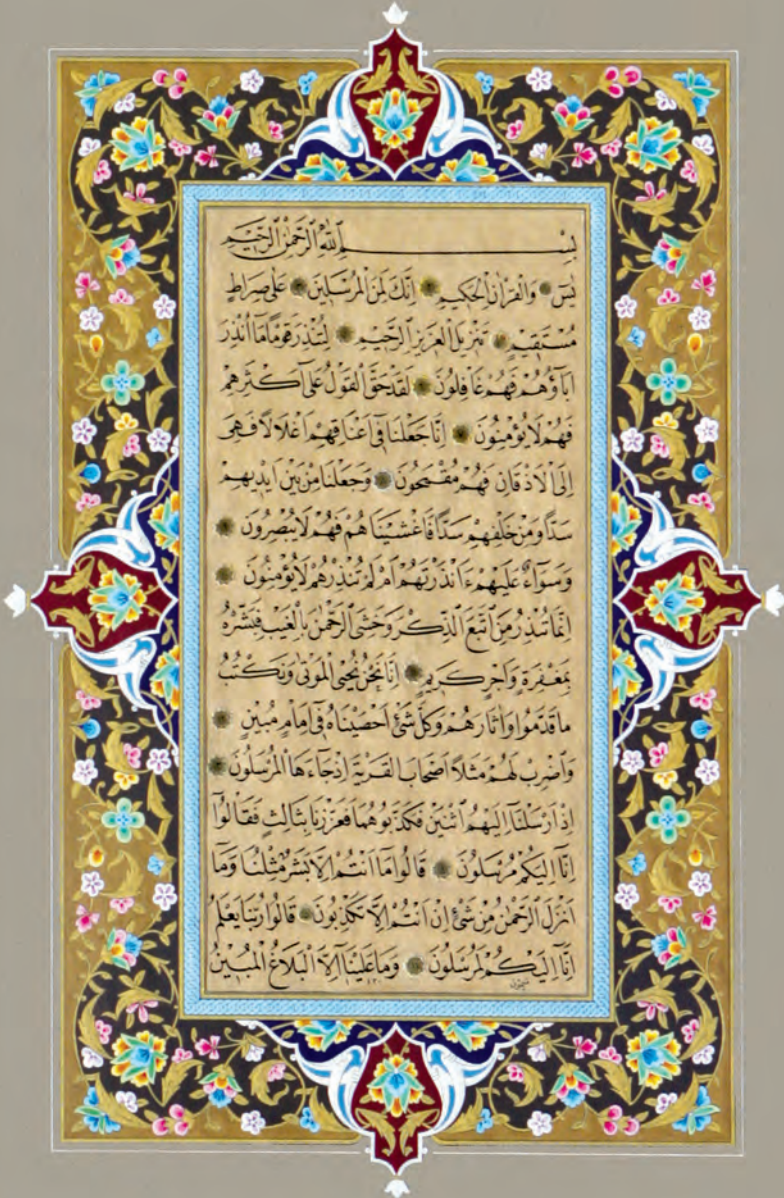 بِسْمِ اللّٰهِ الرَّحْمٰنِ الرَّحِيمِ
يٰسٓ وَالْقُرْاٰنِ الْحَكِيمِ اِنَّكَ لَمِنَ الْمُرْسَلِينَ عَلٰى صِرَاطٍ
مُسْتَقِيمٍ تَنْزِيلَ الْعَزِيزِ الرَّحِيمِ لِتُنْذِرَ قَوْمًا مَٓا اُنْذِرَ
اٰبَٓاؤُهُمْ فَهُمْ غَافِلُونَ لَقَدْ حَقَّ الْقَوْلُ عَلٰٓى اَكْثَرِهِمْ
فَهُمْ لَا يُؤْمِنُونَ اِنَّا جَعَلْنَا فٓى اَعْنَاقِهِمْ اَغْلَالًا فَهِىَ
اِلَى الْاَذْقَانِ فَهُمْ مُقْمَحُونَ وَجَعَلْنَا مِنْ بَيْنِ اَيْدِيهِمْ
سَدًّا وَمِنْ خَلْفِهِمْ سَدًّا فَاَغْشَيْنَاهُمْ فَهُمْ لَا يُبْصِرُونَ
وَسَوَٓاءٌ عَلَيْهِمْ ءَاَنْذَرْتَهُمْ اَمْ لَمْ تُنْذِرْهُمْ لَا يُؤْمِنُونَ
اِنَّمَا تُنْذِرُ مَنِ اتَّبَعَ الذِّكْرَ وَخَشِىَ الرَّحْمٰنَ بِالْغَيْبِ فَبَشِّرْهُ
بِمَغْفِرَةٍ وَاَجْرٍ كَرِيمٍ اِنَّا نَحْنُ نُحْيِى الْمَوْتٰى وَنَكْتُبُ
مَا قَدَّمُوا وَاٰثَارَهُمْ وَكُلَّ شَىْءٍ اَحْصَيْنَاهُ فٓى اِمَامٍ مُبِينٍ
وَاضْرِبْ لَهُمْ مَثَلًا اَصْحَابَ الْقَرْيَةِ اِذْ جَٓاءَهَا الْمُرْسَلُونَ
اِذْ اَرْسَلْنَٓا اِلَيْهِمُ اثْنَيْنِ فَكَذَّبُوهُمَا فَعَزَّزْنَا بِثَالِثٍ فَقَالُٓوا
اِنَّٓا اِلَيْكُمْ مُرْسَلُونَ قَالُوا مَٓا اَنْتُمْ اِلَّا بَشَرٌ مِثْلُنَا وَمَٓا
اَنْزَلَ الرَّحْمٰنُ مِنْ شَىْءٍ اِنْ اَنْتُمْ اِلَّا تَكْذِبُونَ قَالُوا رَبُّنَا يَعْلَمُ
اِنَّٓا اِلَيْكُمْ لَمُرْسَلُونَ وَمَا عَلَيْنَٓا اِلَّا الْبَلَاغُ الْمُبِينُ